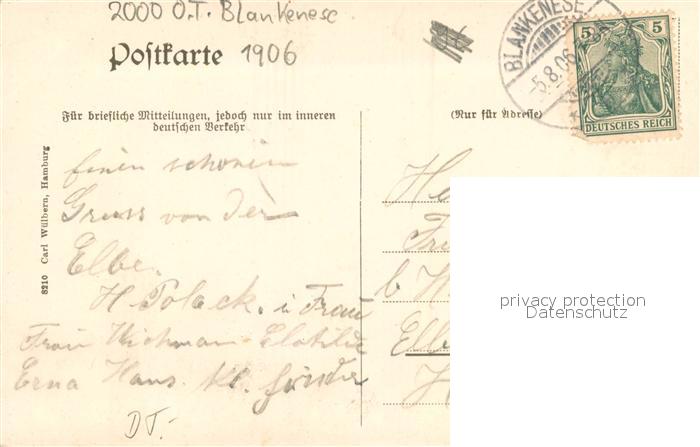 2000 O.T. Blankenese
Postkarte 1906
BLANKENESE
-5.8.06
5 5
DEUTSCHES REICH
Für briefliche Mitteilungen, jedoch nur im inneren
deutschen Verkehr.
(Nur für Adresse)
8210 Carl Wülbern, Hamburg
Einen schönen
Gruss von der
Elbe.
H. Polack. u Frau
Frau Wichman Clotilde
Erna Hans kl.
DT.-
He
Fr
b. H
Elb
H
privacy protection
Datenschutz